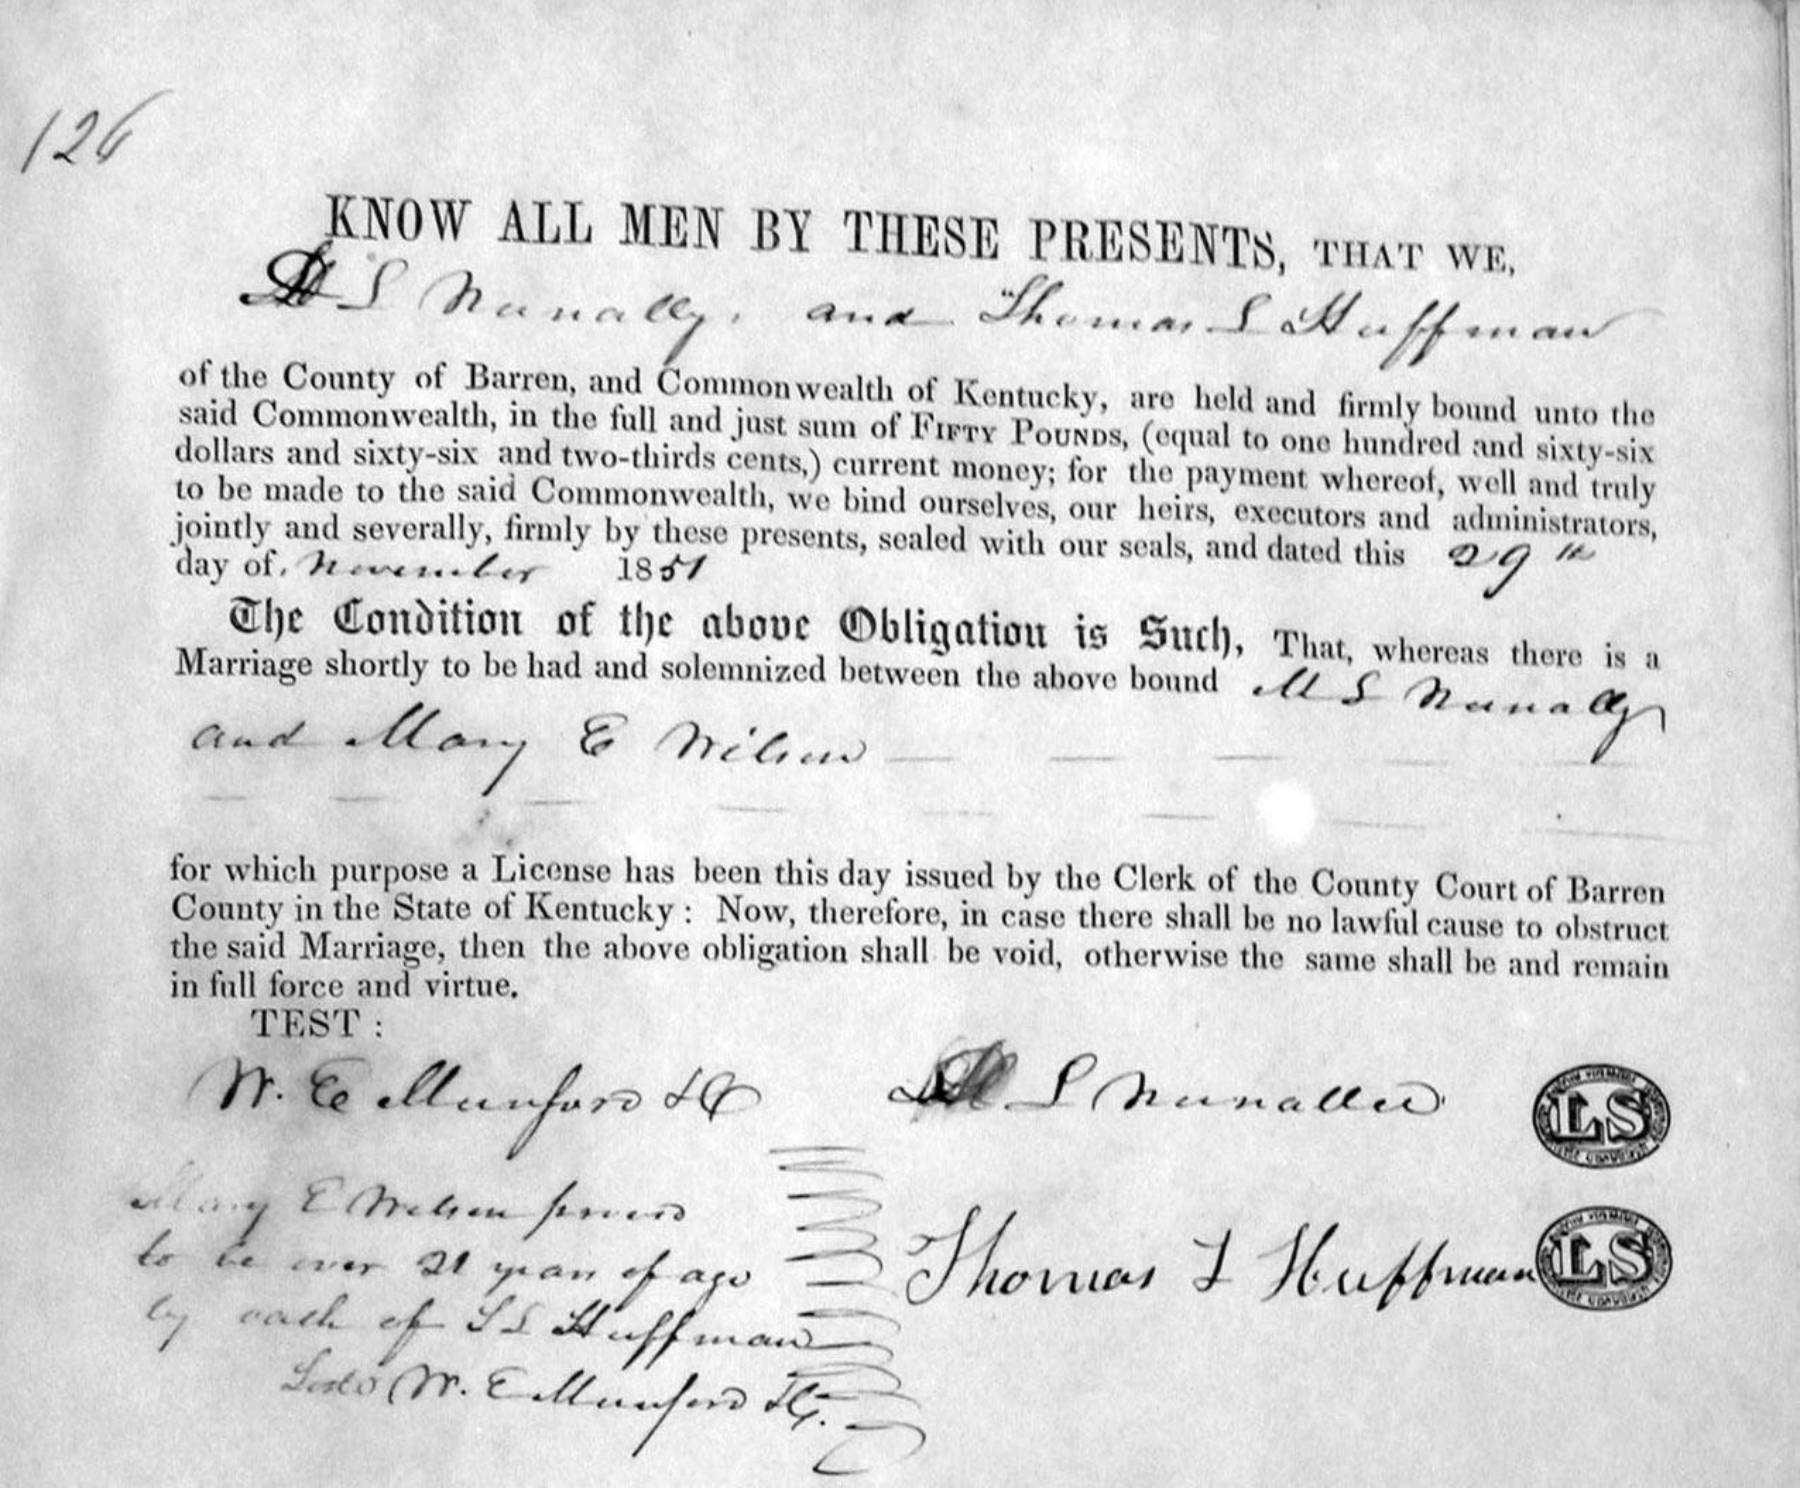 126
KNOW ALL MEN BY THESE PRESENTS, THAT WE,
M S Nunally, and Thomas L Huffman
of the County of Barren, and Commonwealth of Kentucky, are held and firmly bound unto the
said Commonwealth, in the full and just sum of FIFTY POUNDS, (equal to one hundred and sixty-six
dollars and sixty-six and two-thirds cents,) current money; for the payment whereof, well and truly
to be made to the said Commonwealth, we bind ourselves, our heirs, executors and administrators,
jointly and severally, firmly by these presents, sealed with our seals, and dated this 29th
day of November 1851
The Condition of the above Obligation is Such, That, whereas there is a
Marriage shortly to be had and solemnized between the above bound M S Nunally
and Mary E Wilson
for which purpose a License has been this day issued by the Clerk of the County Court of Barren
County in the State of Kentucky: Now, therefore, in case there shall be no lawful cause to obstruct
the said Marriage, then the above obligation shall be void, otherwise the same shall be and remain
in full force and virtue.
TEST:
W. E Munford
M S Nunallee
LS
Mary E Wilson proved
to be over 21 years of age
by oath of Huffman
W. E Munford
Thomas L Huffman
LS